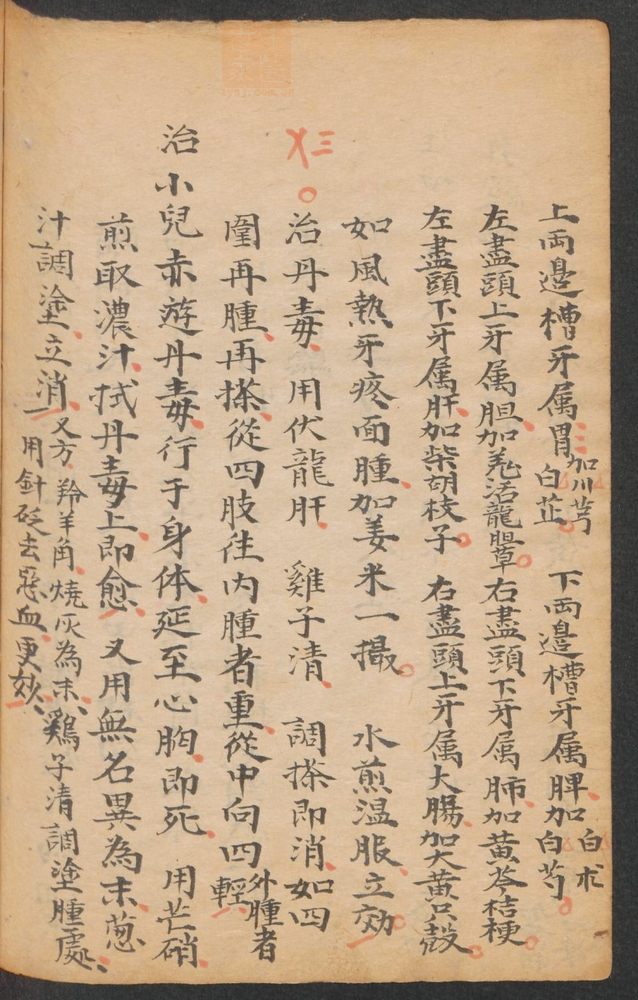 上両邉槽牙属胃加川芎白芷 下両邉槽牙属脾加白朮白芍
左盡頭上牙属胆加羗活龍胆草 右盡頭下牙属肺加黄芩桔梗
左盡頭下牙属肝加柴胡枝子 右盡頭上牙属大腸加大黄只殼
如風熱牙疼面腫加姜米一撮 水煎温服立効
三
治丹毒 用伏龍肝 雞子清 調搽即消如四
圍再腫再搽從四肢往内腫者重從中向四外腫者輕
治小兒赤遊丹毒行于身体延至心胸即死 用芒硝
煎取濃汁拭丹毒上即愈 又用無名異為末葱
汁調塗立消 又方羚羊角燒灰為末鷄子清調塗腫處
用針砭去惡血更妙